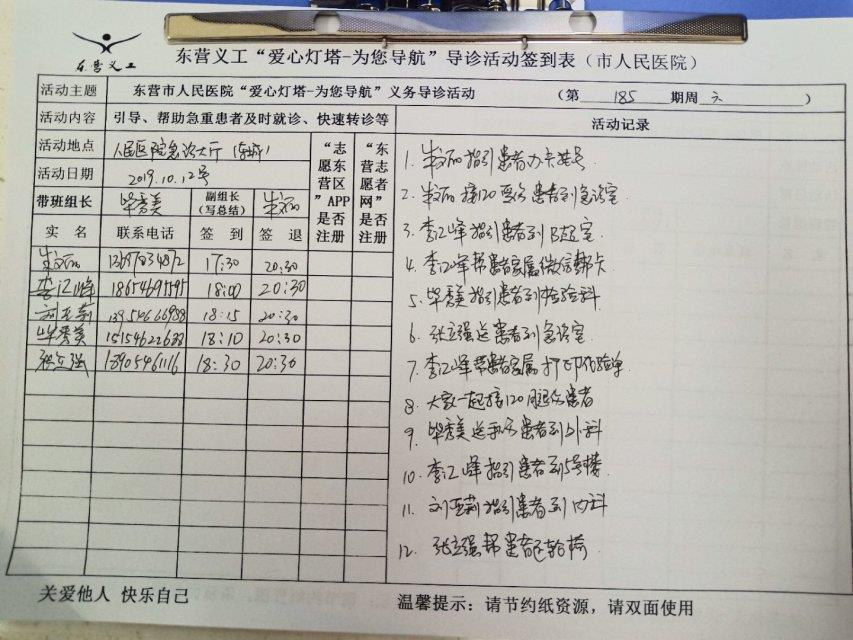 东营义工
东营义工“爱心灯塔-为您导航”导诊活动签到表（市人民医院）
活动主题 东营市人民医院“爱心灯塔-为您导航”义务导诊活动 （第 185 期周 六 ）
活动内容 引导、帮助急重患者及时就诊、快速转诊等 活动记录
活动地点 人民医院急诊大厅（东城） “志愿东营区”APP是否注册 “东营志愿者网”是否注册
活动日期 2019.10.12号
带班组长 毕秀美 副组长（写总结）
实 名 联系电话 签 到 签 退
17:30 20:30
李江峰 18654691595 18:00 20:30
刘亚莉 18:15 20:30
毕秀美 15154622688 18:10 20:30
张立强 18905461116 18:30 20:30
1. 指引患者办卡挂号
2. 接120要分患者到急诊室
3. 李江峰指引患者到B超室
4. 李江峰帮患者家属微信绑卡
5. 毕秀美指引患者到检验科
6. 张立强送患者到急诊室
7. 李江峰帮患者家属打印化验单
8. 大家一起接120腿伤患者
9. 毕秀美送患者到外科
10. 李江峰指引患者到5号楼
11. 刘亚莉指引患者到内科
12. 张立强帮患者还轮椅
关爱他人 快乐自己
温馨提示：请节约纸资源，请双面使用